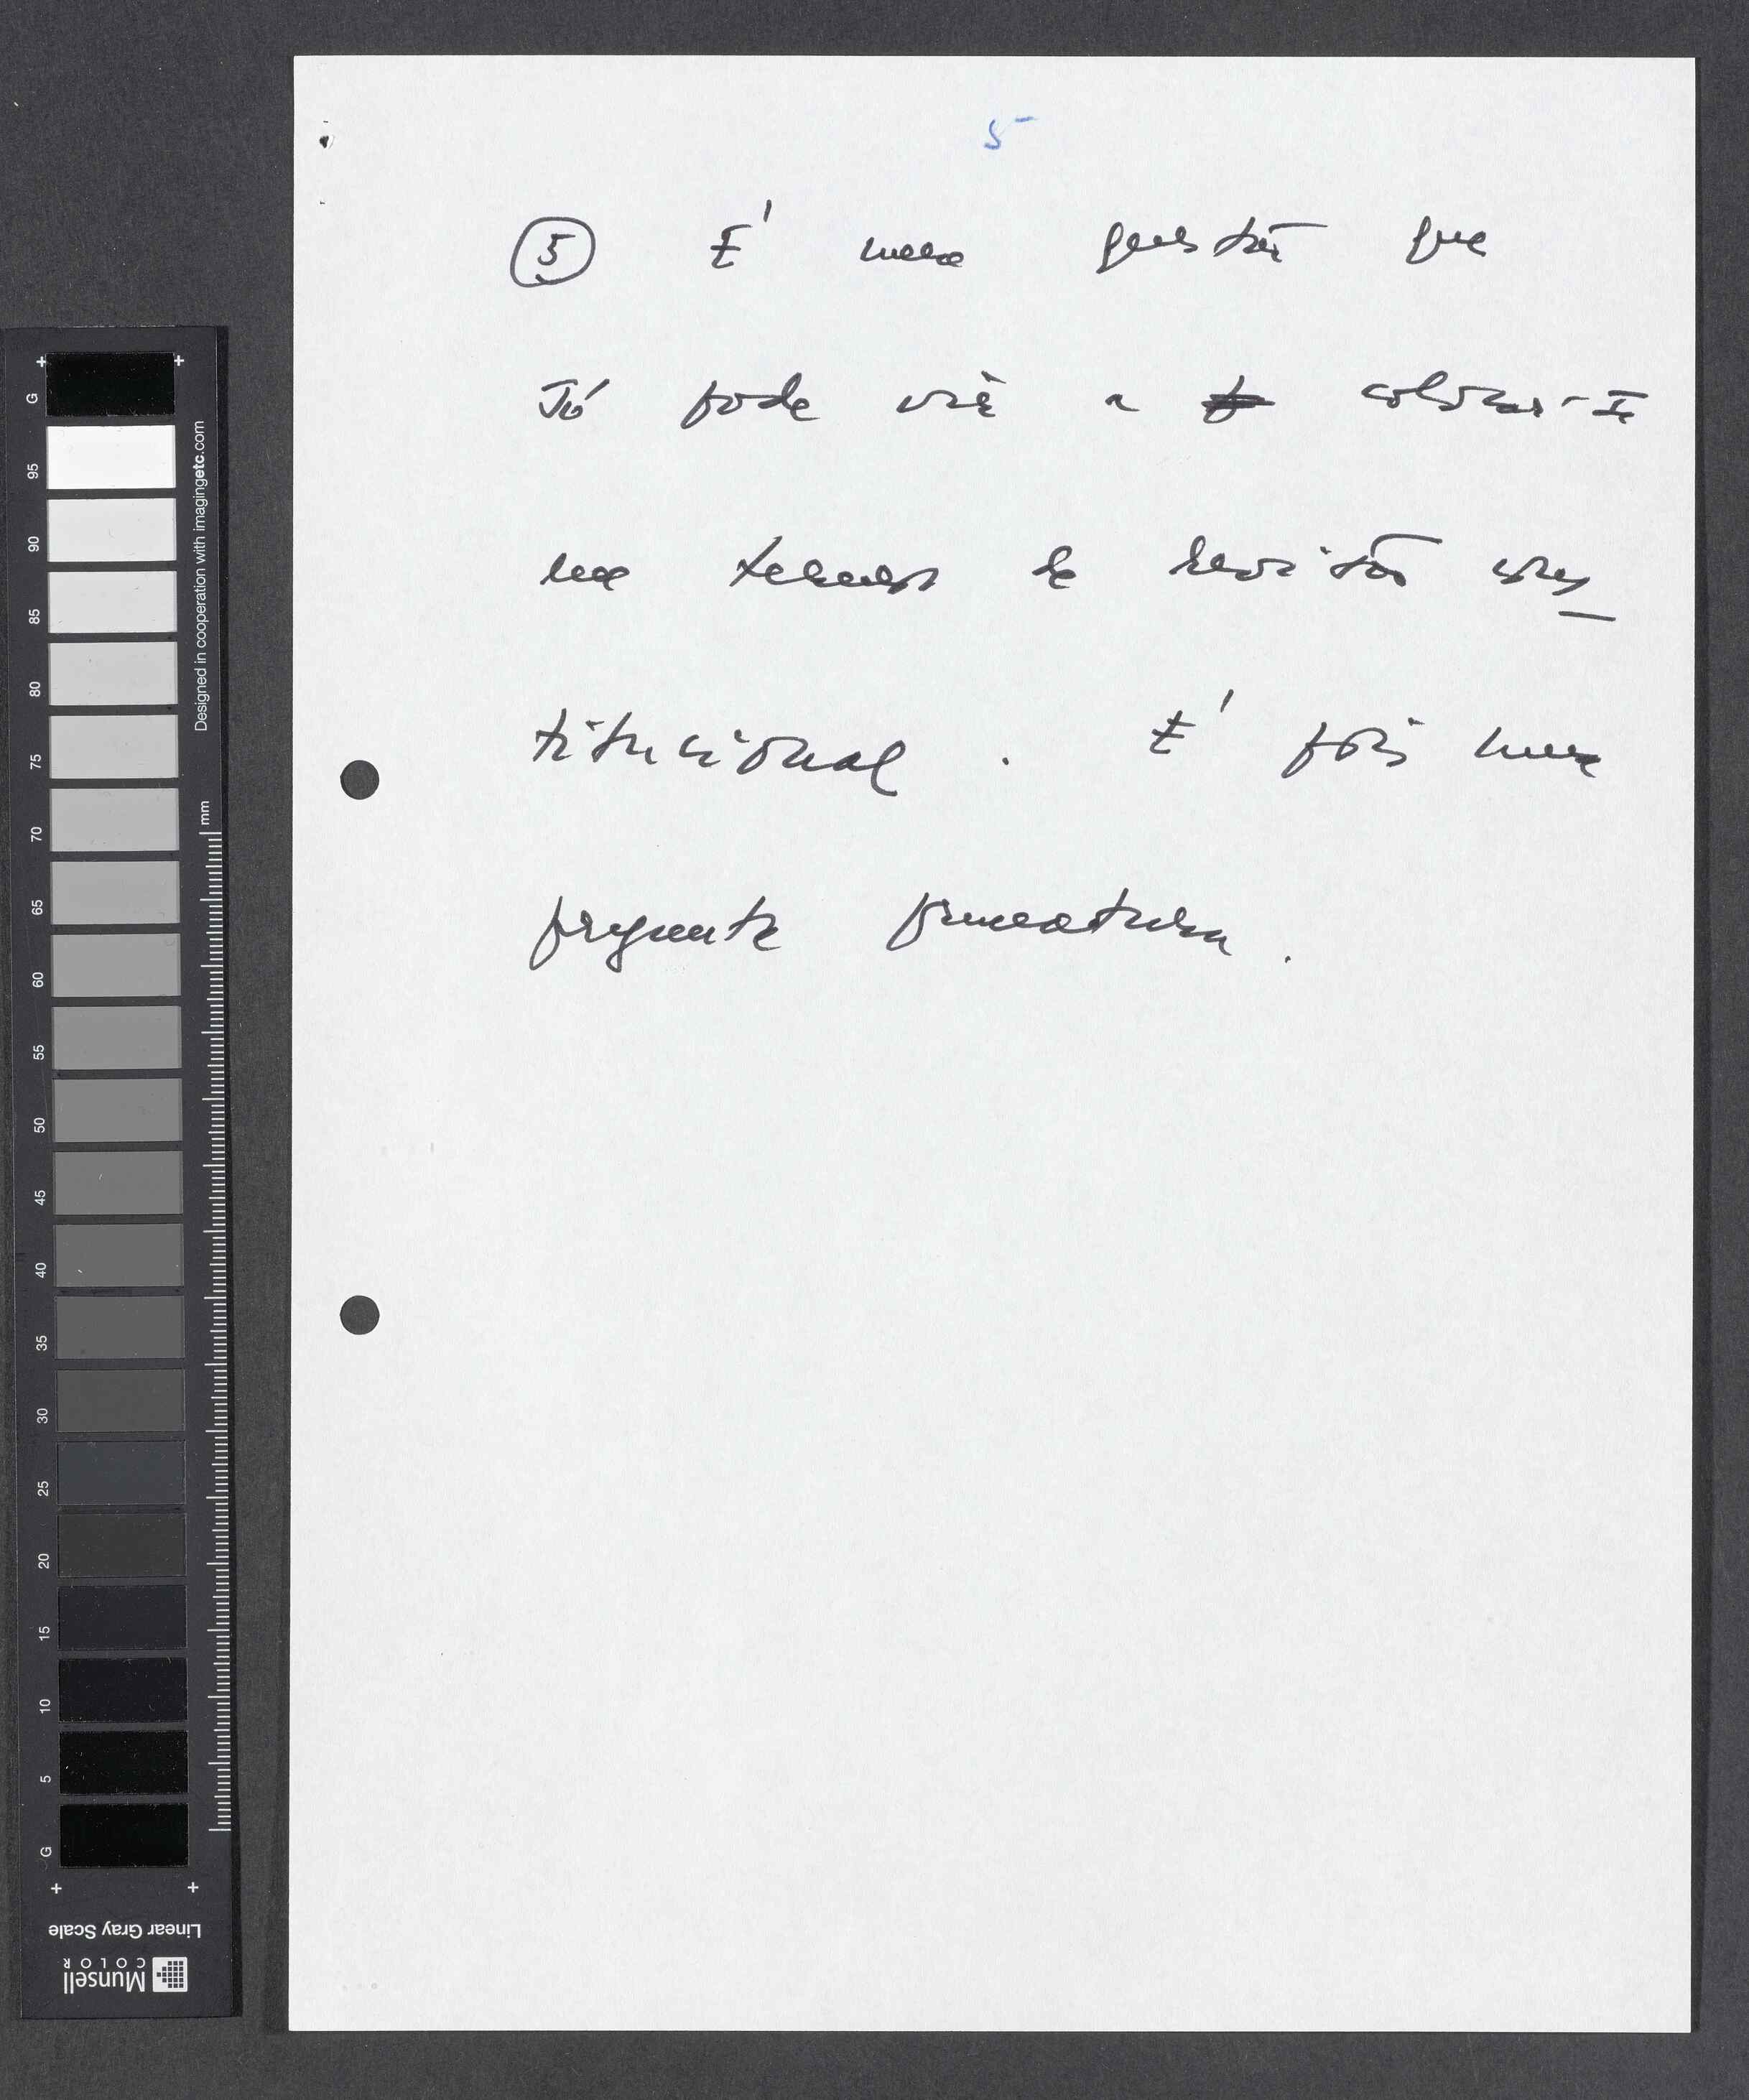 5
⑤ É uma questão que
só pode vir a p colocar-se
em termos de revisão cons_
titucional . É pois uma
pergunta prematura .
G 95 90 85 80 75 70 65 60 55 50 45 40 35 30 25 20 15 10 5 G
Designed in cooperation with imagingetc.com
mm
Linear Gray Scale
Munsell
COLOR